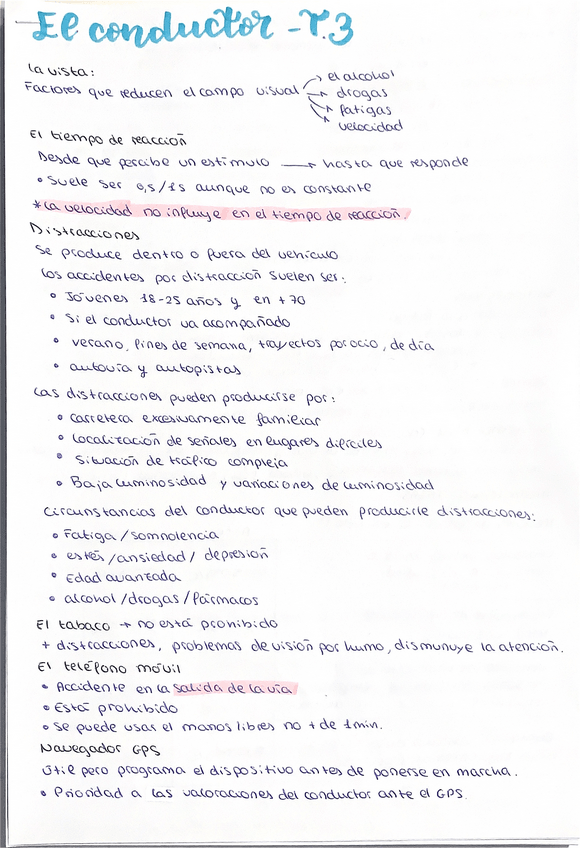 El conductor - T.3
La vista:
Factores que reducen el campo visual → el alcohol
→ drogas
→ fatigas
→ velocidad
El tiempo de reacción
Desde que percibe un estímulo → hasta que responde
• Suele ser 0,5/1s aunque no es constante
* La velocidad no influye en el tiempo de reacción.
Distracciones
Se produce dentro o fuera del vehículo
Los accidentes por distracción suelen ser:
• Jóvenes 18-25 años y en +70
• Si el conductor va acompañado
• verano, fines de semana, trayectos por ocio, de día
• autovía y autopistas
Las distracciones pueden producirse por:
• carretera excesivamente familiar
• localización de señales en lugares difíciles
• Situación de tráfico compleja
• Baja luminosidad y variaciones de luminosidad
Circunstancias del conductor que pueden producirle distracciones:
• Fatiga / somnolencia
• estés / ansiedad / depresión
• Edad avanzada
• alcohol / drogas / fármacos
El tabaco → no está prohibido
+ distracciones, problemas de visión por humo, dismunuye la atención.
El teléfono móvil
• Accidente en la salida de la vía
• Está prohibido
• Se puede usar el manos libres no + de 1 min.
Navegador GPS
Útil pero programa el dispositivo antes de ponerse en marcha.
• Prioridad a las valoraciones del conductor ante el GPS.